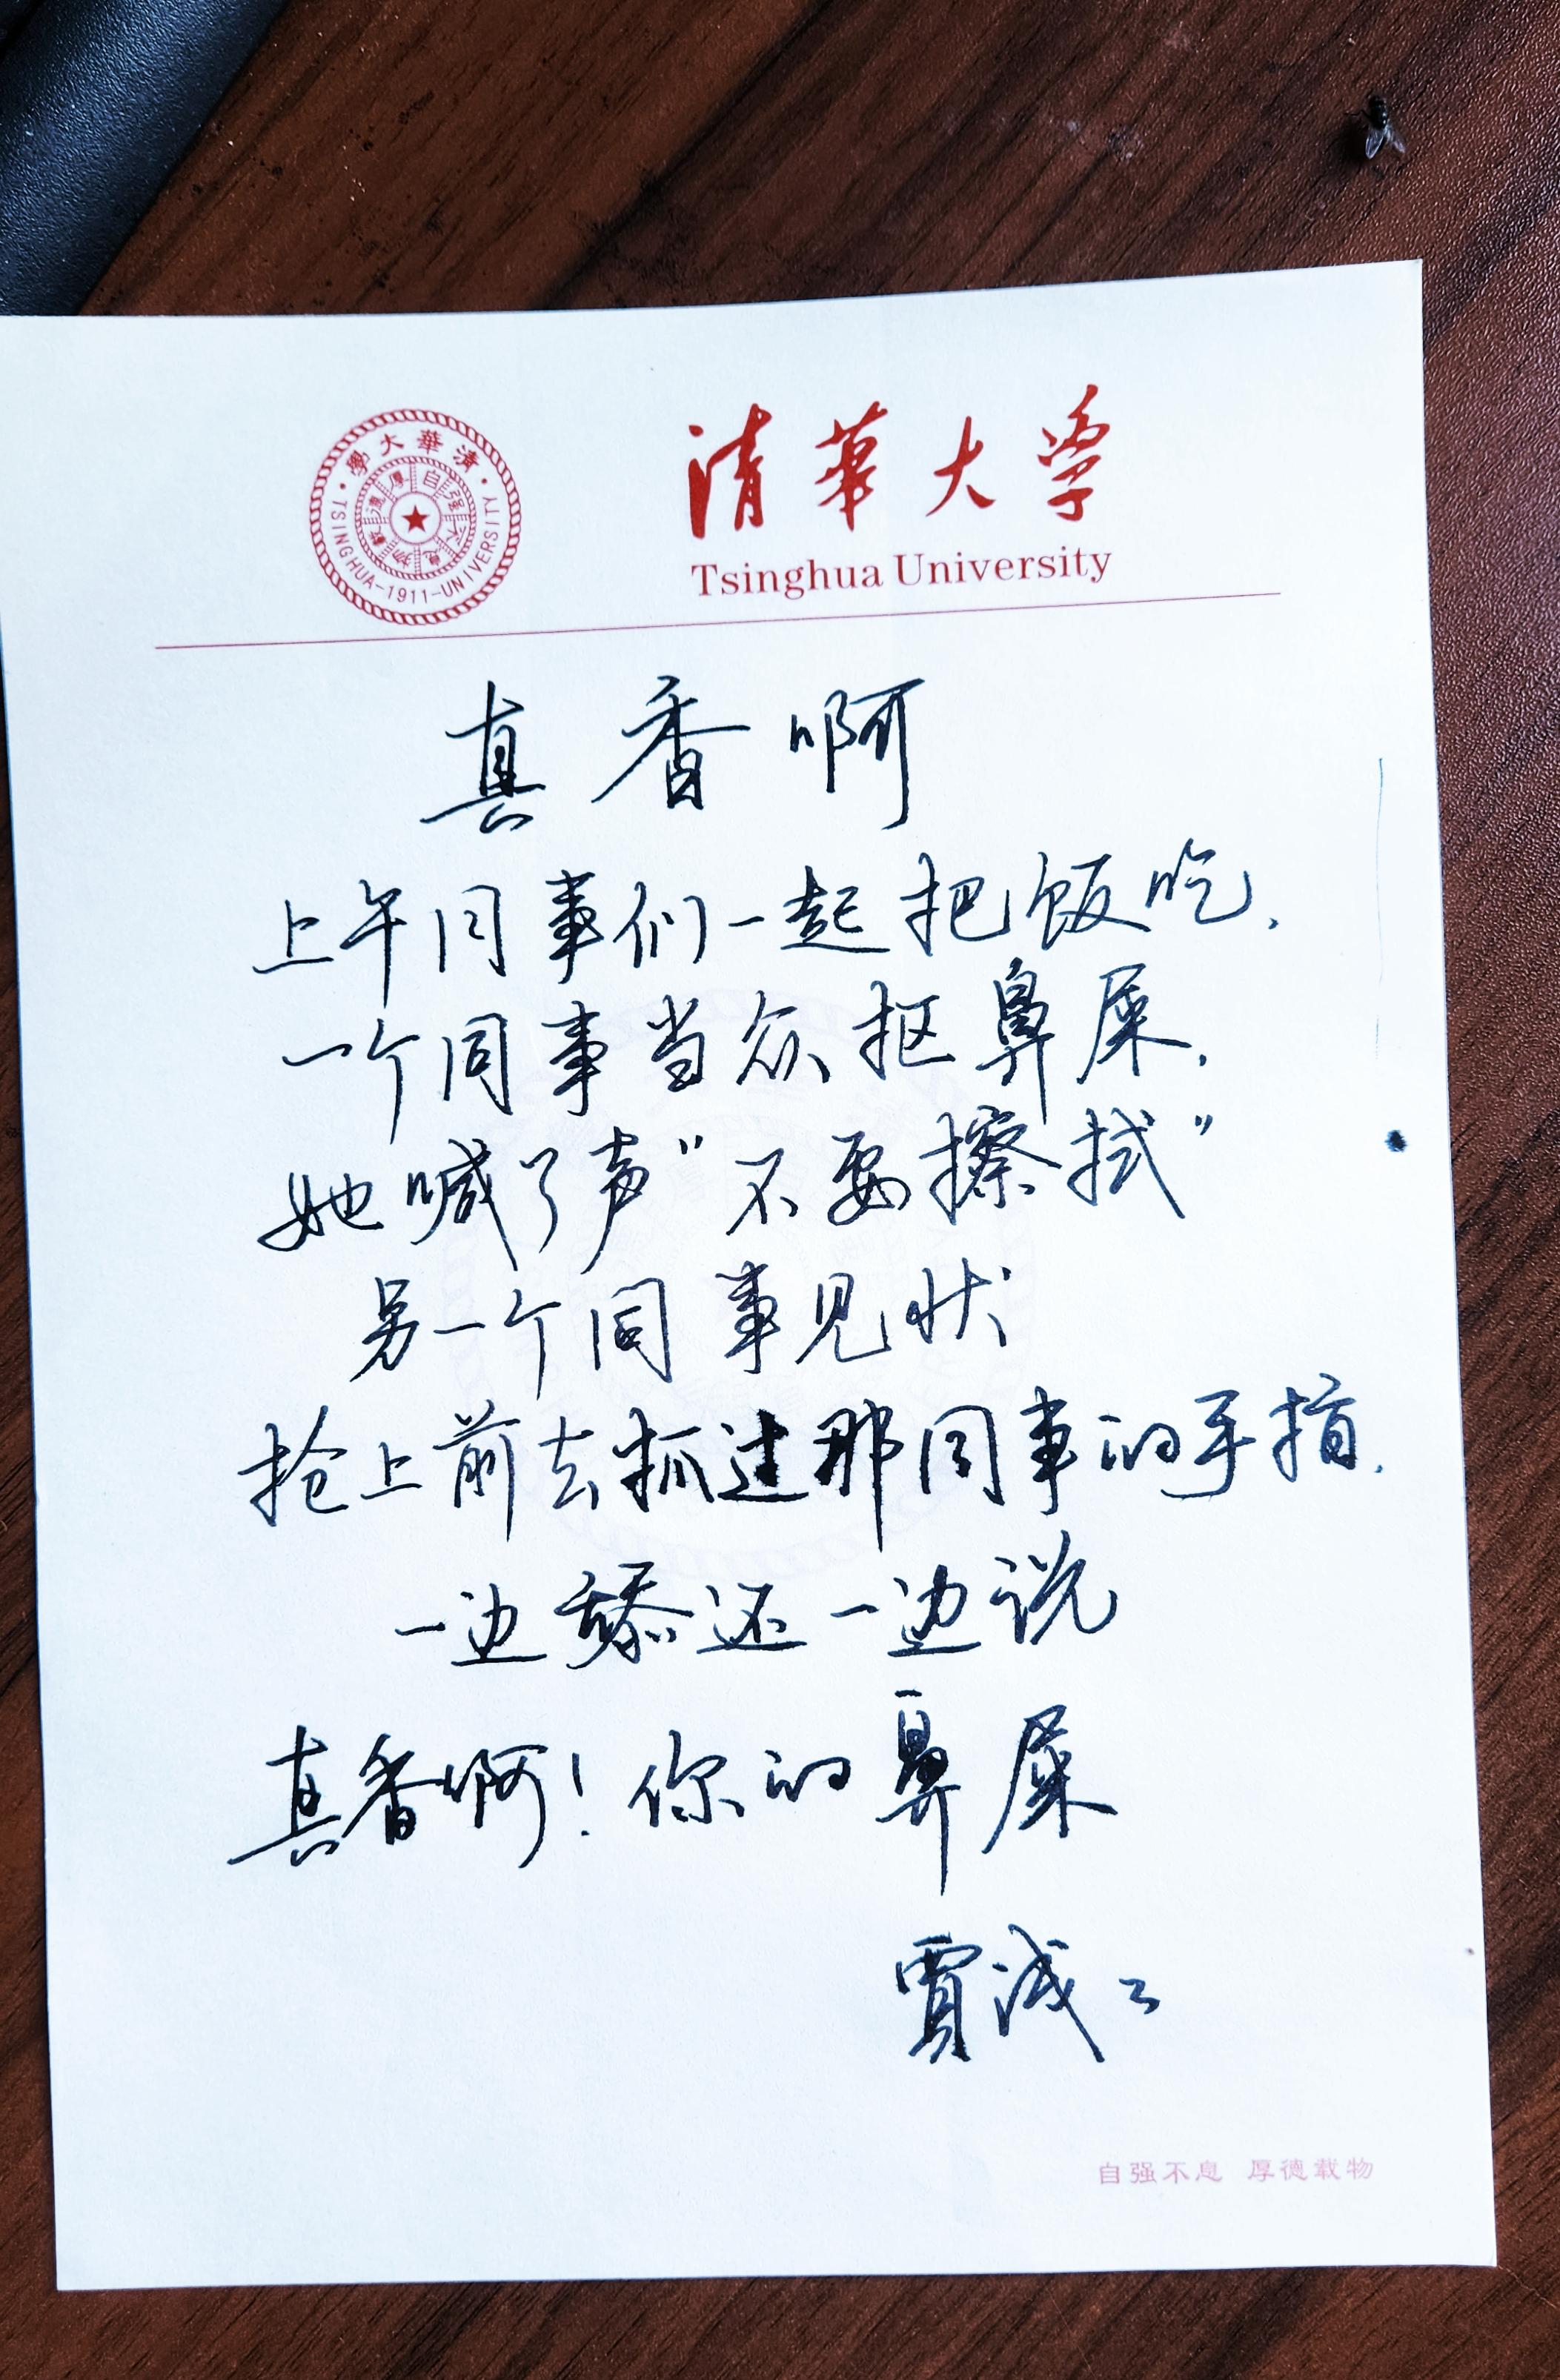 清華大學
自强不息
厚德載物
TSINGHUA-1911-UNIVERSITY
清华大学
Tsinghua University
真香啊
上午同事们一起把饭吃,
一个同事当众抠鼻屎,
她喊了声"不要擦拭"
另一个同事见状
抢上前去抓过那同事的手指,
一边舔还一边说
真香啊!你的鼻屎
賈浅々
自强不息 厚德载物